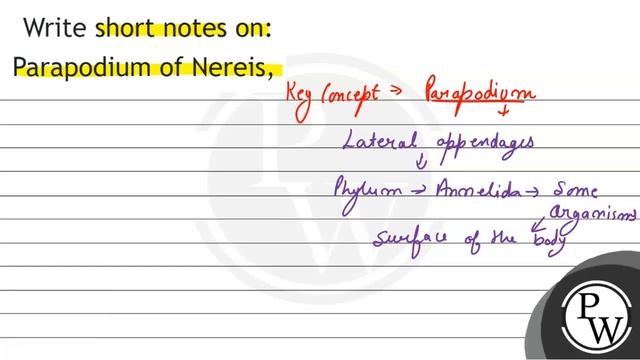 Write short notes on:
Parapodium of Nereis,
Key Concept → Parapodium
Lateral appendages
Phylum → Annelida → Some
Organisms
Surface of the body
PW
PW